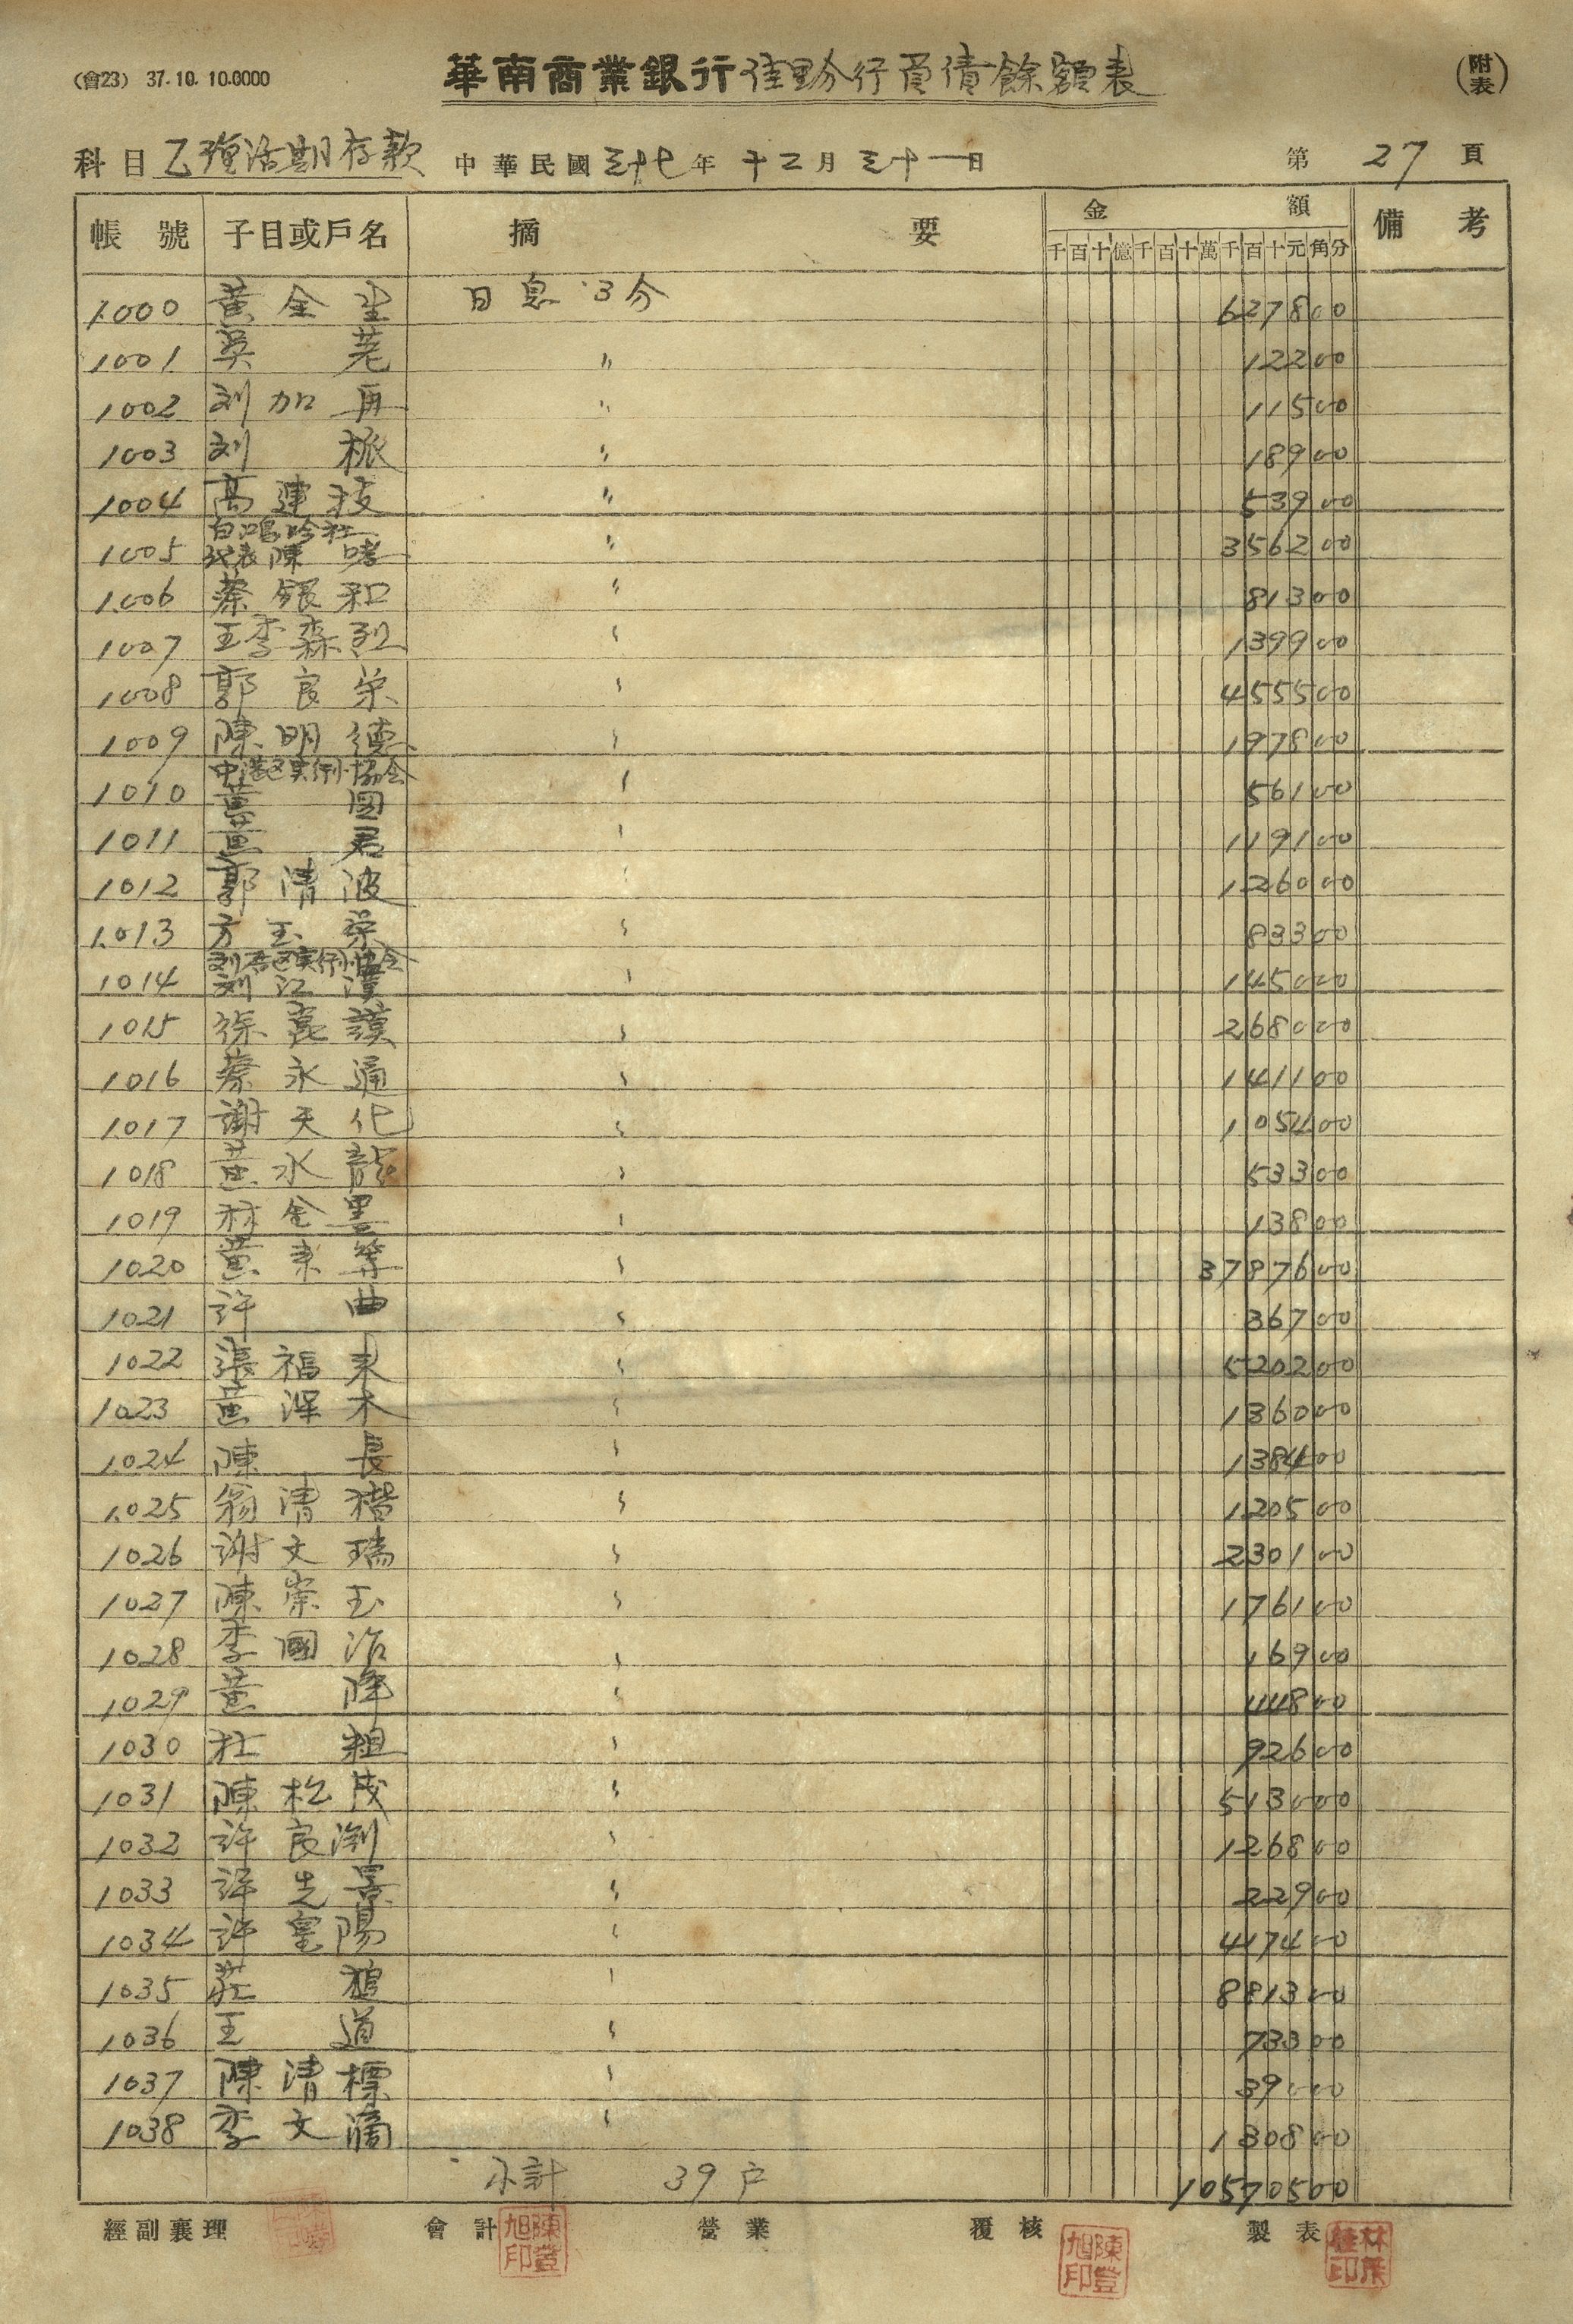 (會23) 37.10.10.0000
華南商業銀行佳里分行負債餘額表
(附表)
科目 乙種活期存款 中華民國三十七年十二月三十一日 第27頁
帳號 子目或戶名 摘要 金額 備考
千百十億千百十萬千百十元角分
1000 黃金生 日息 3分 627800
1001 吳荖 〃 12200
1002 刘加再 〃 11500
1003 刘振 〃 18900
1004 高連枝 〃 53900
白鴎吟社
1005 代表陳哮 〃 356200
1006 蔡銀和 〃 81300
1007 王李森烈 〃 139900
1008 郭良荣 〃 455500
1009 陳明德 〃 197800
中港区実行小協会
1010 黃國 〃 56100
1011 黃君 〃 119100
1012 郭清波 〃 126000
1013 方玉 〃 83300
1014 刘江漢 〃 145000
1015 徐崑謨 〃 268000
1016 蔡永通 〃 141100
1017 謝天化 〃 105400
1018 黃水龍 〃 53300
1019 林金墨 〃 13800
1020 黃来等 〃 3787600
1021 許曲 〃 36700
1022 張福来 〃 520200
1023 黃深木 〃 136000
1024 陳長 〃 138400
1025 翁清 〃 120500
1026 謝文瑞 〃 230100
1027 陳崇玉 〃 176100
1028 李國治 〃 16900
1029 黃降 〃 44800
1030 杜粗 〃 92600
1031 陳松茂 〃 513000
1032 許良渊 〃 126800
1033 許先景 〃 22900
1034 許皇陽 〃 417400
1035 莊 〃 881300
1036 王道 〃 73300
1037 陳清標 〃 39000
1038 李文滴 〃 130800
小計 39户 10570500
經副襄理 會計 營業 覆核 製表
陳登旭印
陳登旭印
林